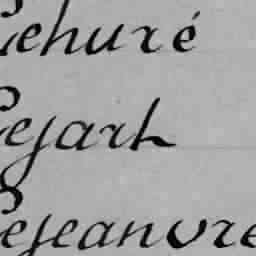 Lehuré
Lejart
Lejeanvre